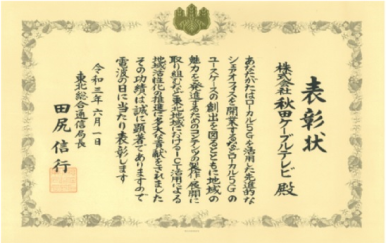 表彰状
株式会社 秋田ケーブルテレビ 殿
あなたがたはローカル5Gを活用した先進的な
シェアオフィスを開業するなどローカル5Gの
ユースケースの創出を図るとともに地域の
魅力を発進するためのコンテンツの製作・展開に
取り組むなど東北地域におけるICT活用による
地域活性化の推進に多大な貢献をされました
その功績は誠に顕著でありますので
電波の日に当たり表彰します
令和三年六月一日
東北総合通信局長
田尻信行